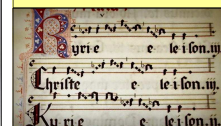 Kyri e e le i son. iij.
Christe e le i son. iij.
Ky ri e e le i son. ij.